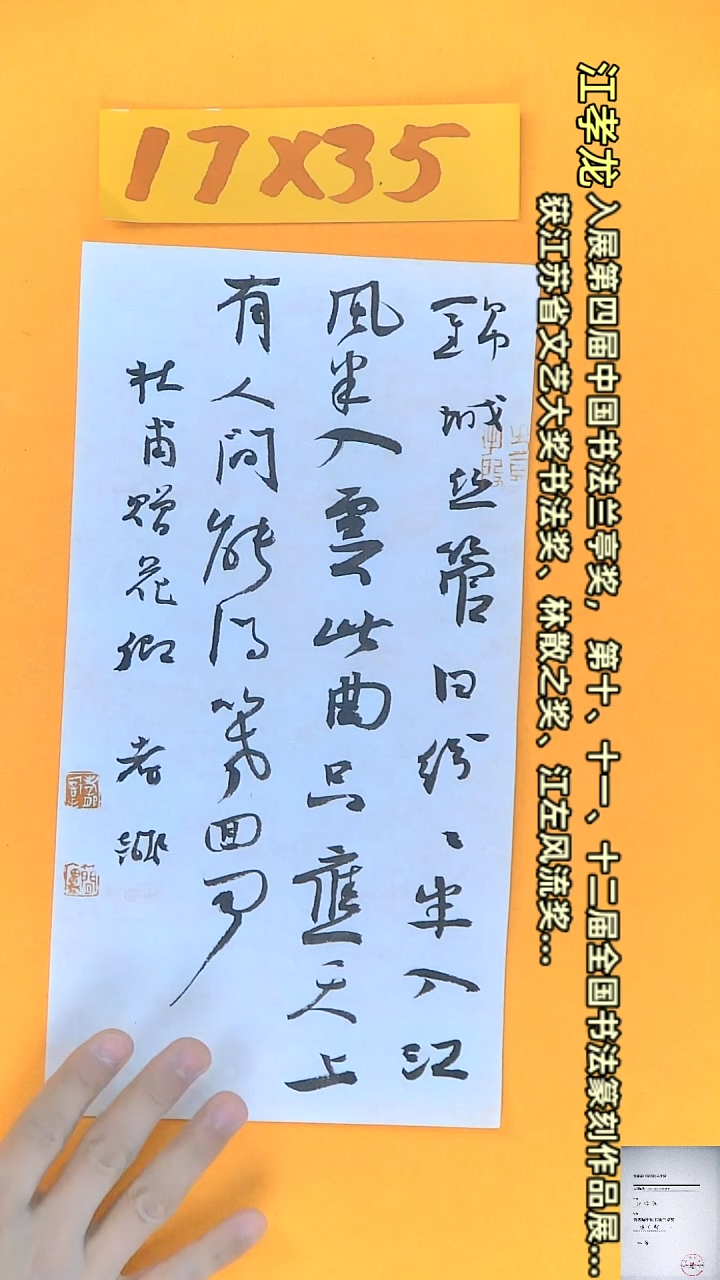 17X35
江孝龙 入展第四届中国书法兰亭奖，第十、十一、十二届全国书法篆刻作品展...
获江苏省文艺大奖书法奖、林散之奖、江左风流奖...
錦城丝管日紛〻半入江
風半入雲此曲只應天上
有人間能得幾回聞
杜甫贈花卿 孝龍